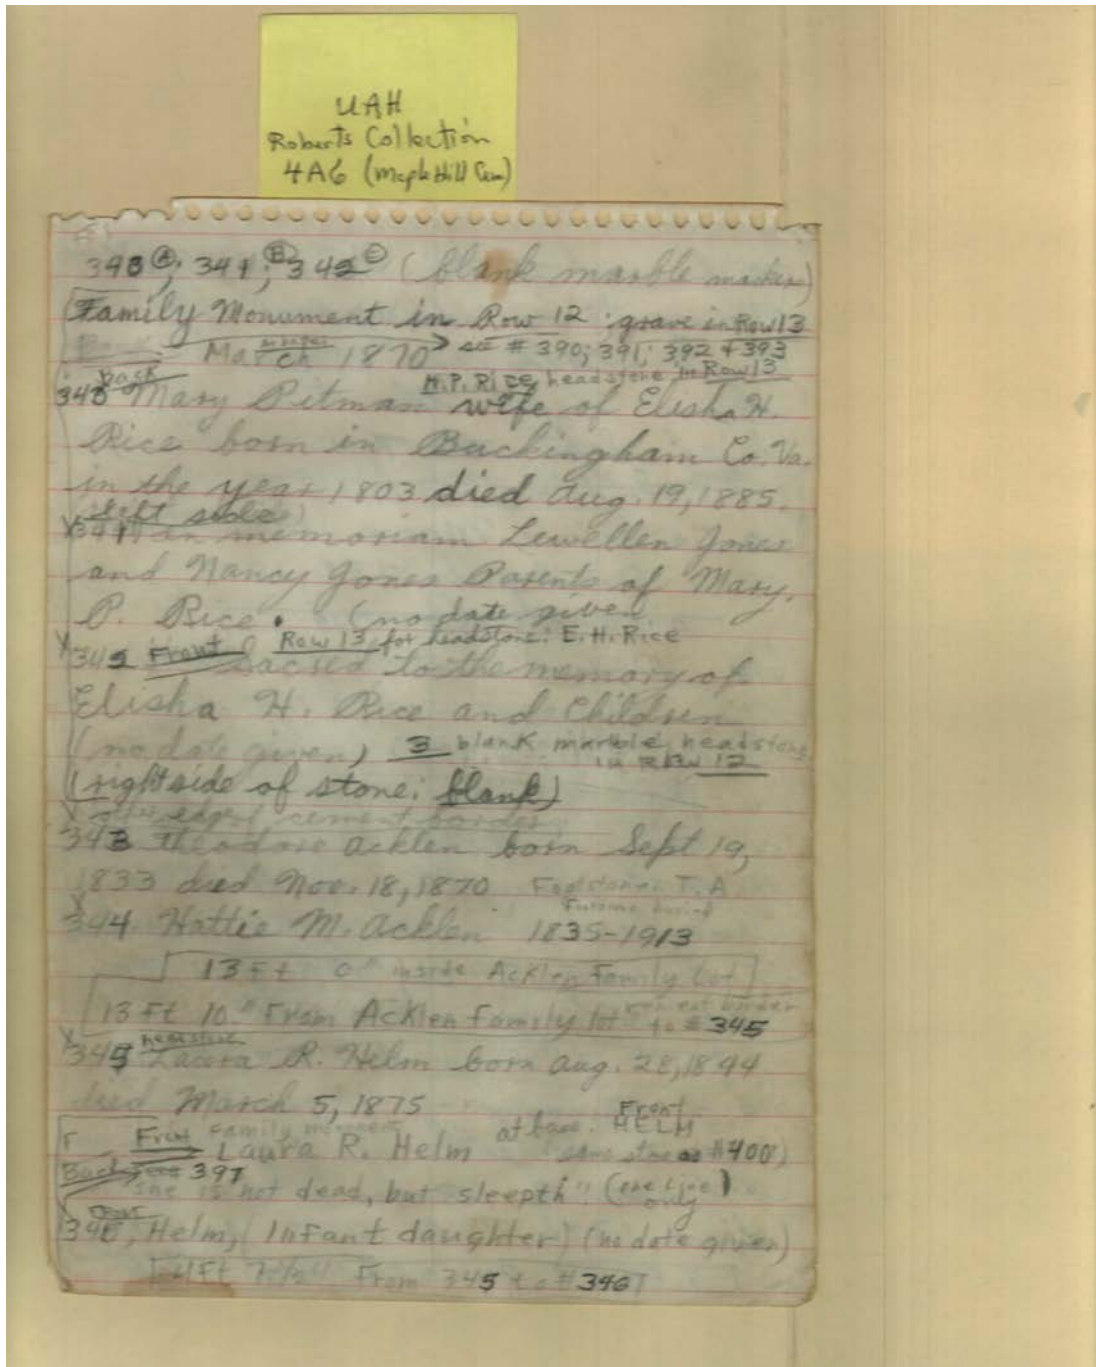 UAH
Roberts Collection
4A6 (Maple Hill Cem)
340 Ⓐ; 341; Ⓑ 342 Ⓒ (blank marble marker)
Family Monument in Row 12 : grave in Row 13
March 1870 see # 390; 391; 392 + 393
Back M.P. Rice, headstone in Row 13
340 Mary Pitman wife of Elisha H.
Rice born in Buckingham Co. Va.
in the year 1803 died Aug. 19, 1885.
left side)
X 341 In memoriam Lewellen Jones
and Nancy Jones Parents of Mary.
P. Rice. (no date given
Row 13 for headstone: E.H. Rice
X 342 Front Sacred to the memory of
Elisha H. Rice and Children
(no date given) 3 blank marble headstone
in Row 12
(right side of stone: blank)
cement border
343 Theodore Acklen born Sept 19,
1833 died Nov. 18, 1870 Footstone: T.A.
344. Hattie M. Acklen 1835-1913
13 Ft 0" inside Acklen Family Lot
13 Ft 10" From Acklen Family lot border
to # 345
X 345 headstone Laura R. Helm born Aug. 28, 1844
died March 5, 1875
Front Family monument at base: Front HELM
Laura R. Helm (same stone as #400)
Back 397
"she is not dead, but sleepth". (one line only)
346, Helm, (Infant daughter) (no date given)
[4Ft 7½" From 345 to #346]